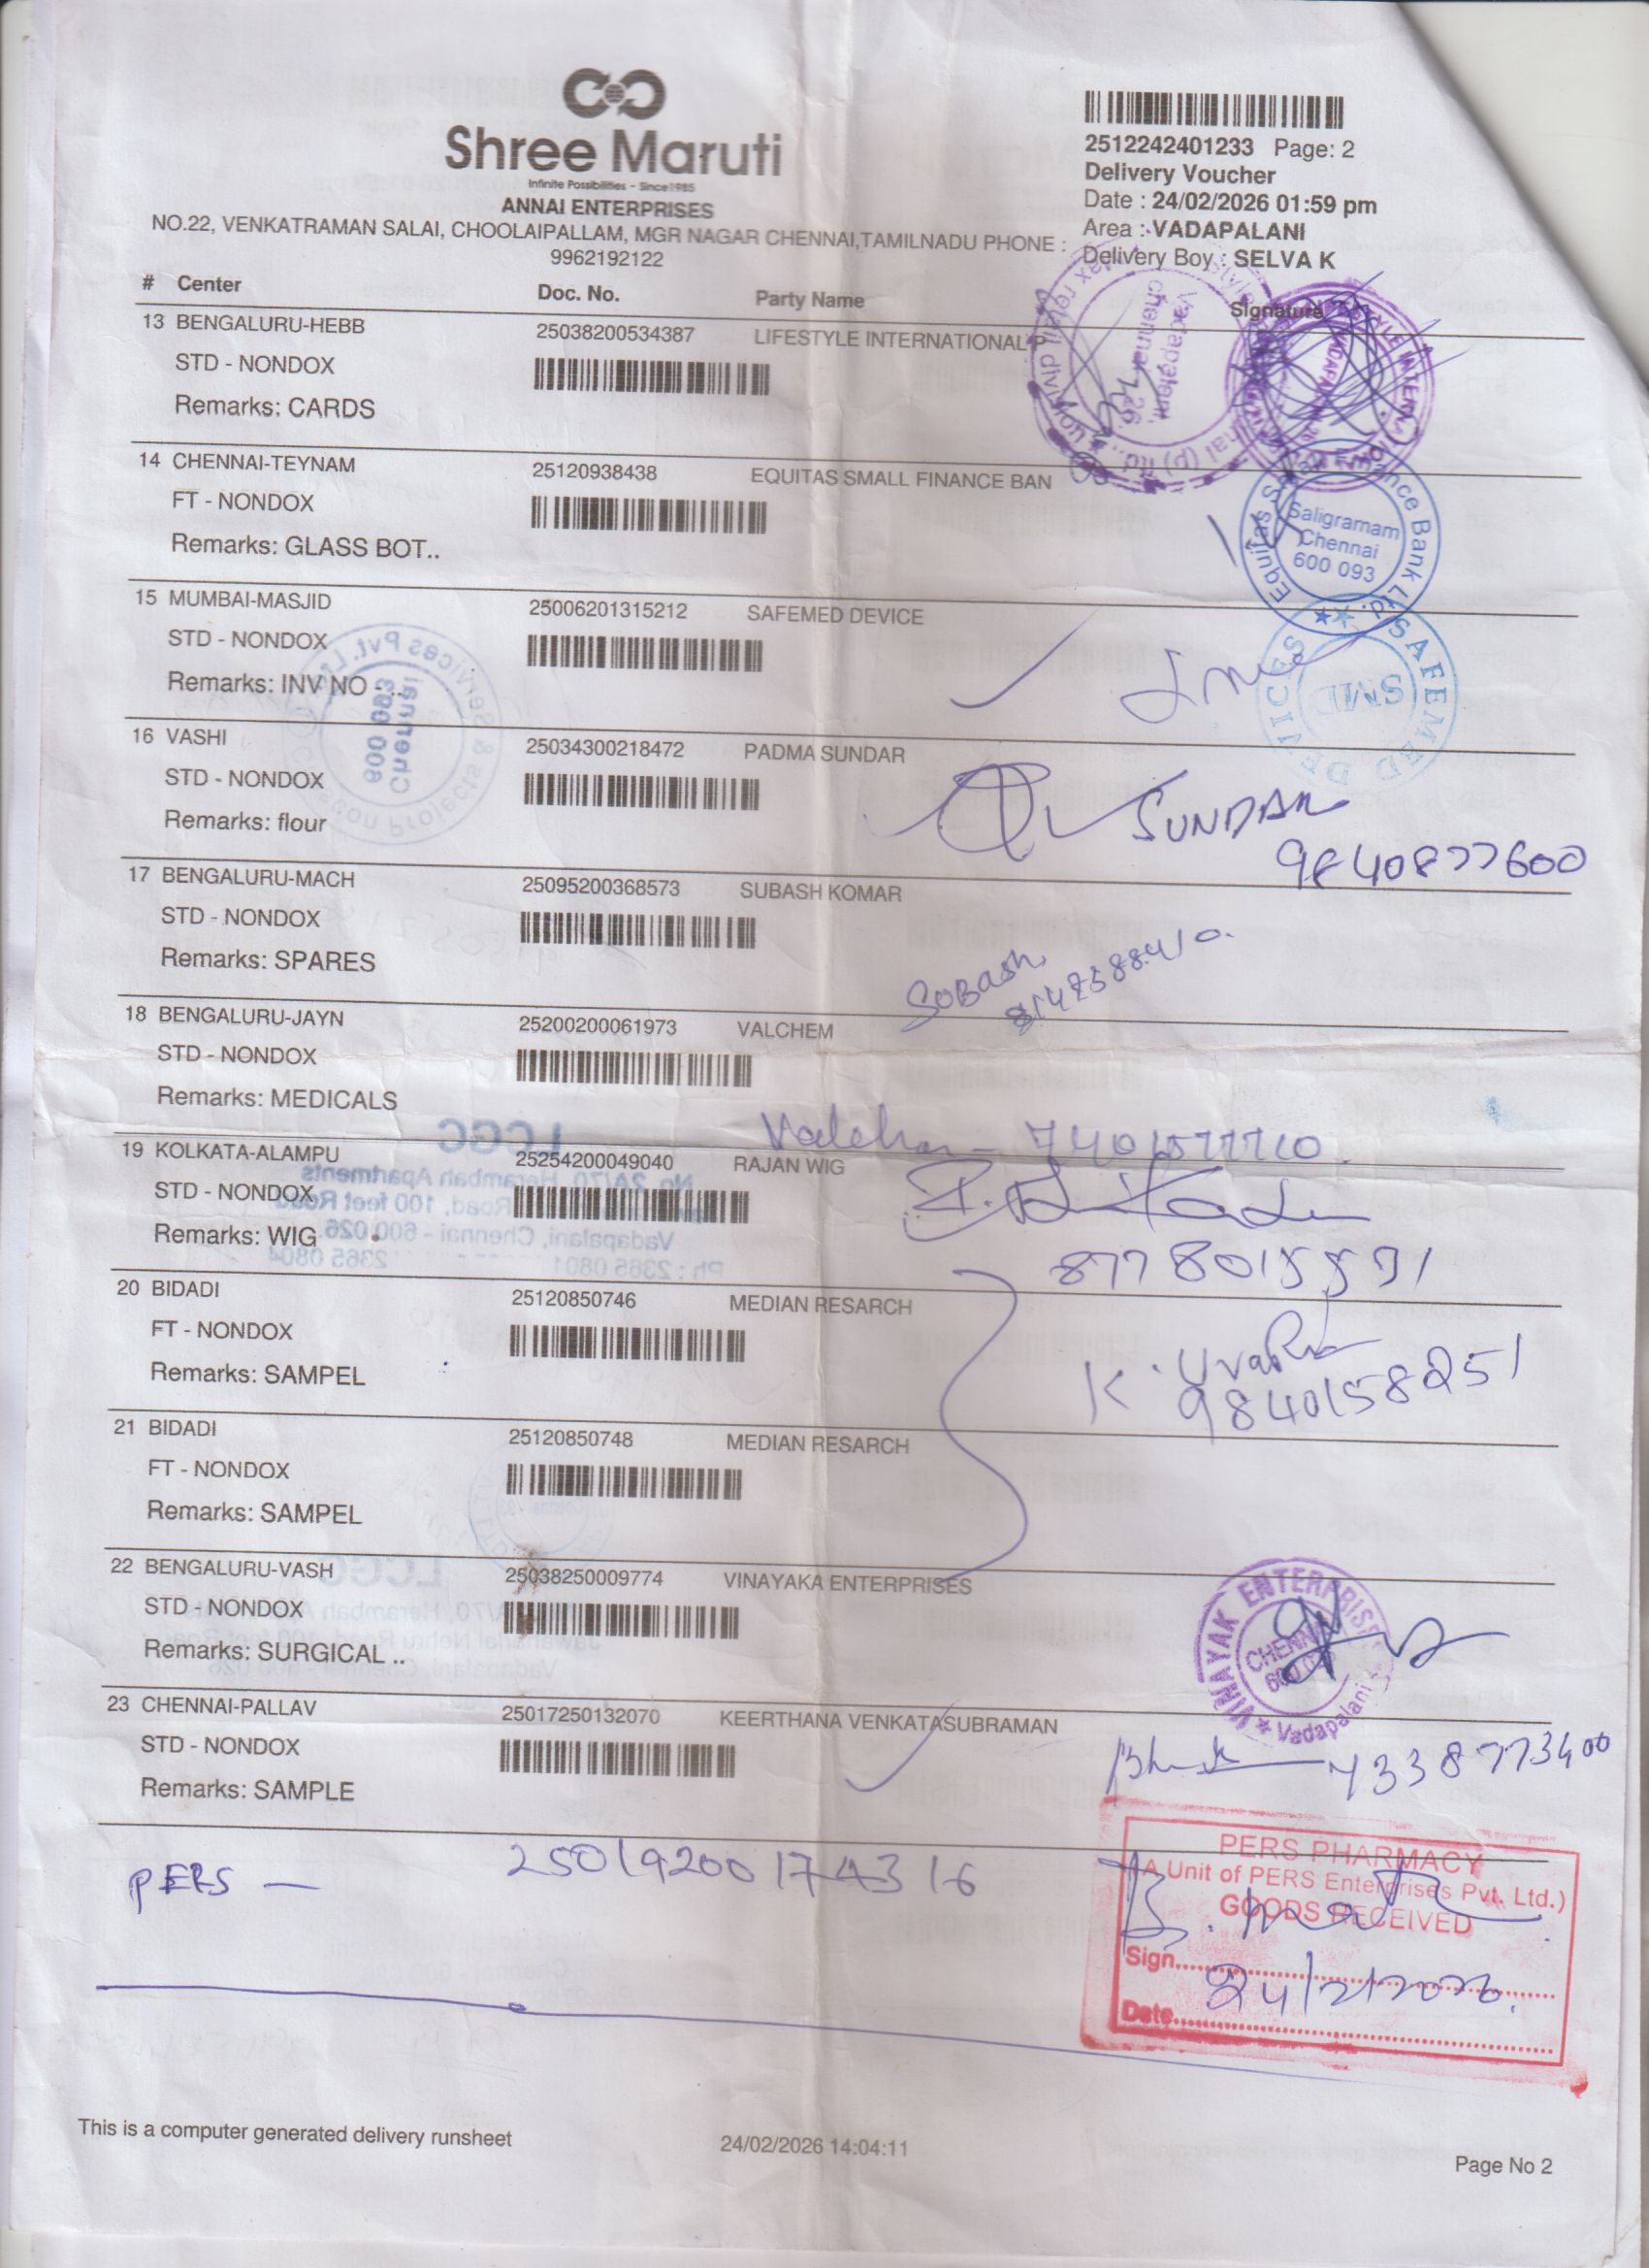 Shree Maruti
Infinite Possibilities - Since1985
ANNAI ENTERPRISES
NO.22, VENKATRAMAN SALAI, CHOOLAIPALLAM, MGR NAGAR CHENNAI,TAMILNADU PHONE :
9962192122
2512242401233 Page: 2
Delivery Voucher
Date : 24/02/2026 01:59 pm
Area : VADAPALANI
Delivery Boy : SELVA K
# Center Doc. No. Party Name Signature
13 BENGALURU-HEBB 25038200534387 LIFESTYLE INTERNATIONAL P
STD - NONDOX
Remarks: CARDS
Vadapalani
chennai
14 CHENNAI-TEYNAM 25120938438 EQUITAS SMALL FINANCE BAN
FT - NONDOX
Remarks: GLASS BOT..
Equitas Small Finance Bank Ltd.
Saligramam
Chennai
600 093
15 MUMBAI-MASJID 25006201315212 SAFEMED DEVICE
STD - NONDOX
Remarks: INV NO -...
SAFEMED DEVICES
SMD
16 VASHI 25034300218472 PADMA SUNDAR
STD - NONDOX
Remarks: flour
SUNDAR
9840877600
17 BENGALURU-MACH 25095200368573 SUBASH KOMAR
STD - NONDOX
Remarks: SPARES
SOBASH
18 BENGALURU-JAYN 25200200061973 VALCHEM
STD - NONDOX
Remarks: MEDICALS
19 KOLKATA-ALAMPU 25254200049040 RAJAN WIG
STD - NONDOX
Remarks: WIG
20 BIDADI 25120850746 MEDIAN RESARCH
FT - NONDOX
Remarks: SAMPEL
9840158251
21 BIDADI 25120850748 MEDIAN RESARCH
FT - NONDOX
Remarks: SAMPEL
22 BENGALURU-VASH 25038250009774 VINAYAKA ENTERPRISES
STD - NONDOX
Remarks: SURGICAL ..
VINAYAK ENTERPRISES
CHENNAI
Vadapalani
23 CHENNAI-PALLAV 25017250132070 KEERTHANA VENKATASUBRAMAN
STD - NONDOX
Remarks: SAMPLE
PERS — 25019200174316
PERS PHARMACY
(A Unit of PERS Enterprises Pvt. Ltd.)
GOODS RECEIVED
Sign
24/2/2026.
Date
This is a computer generated delivery runsheet 24/02/2026 14:04:11 Page No 2